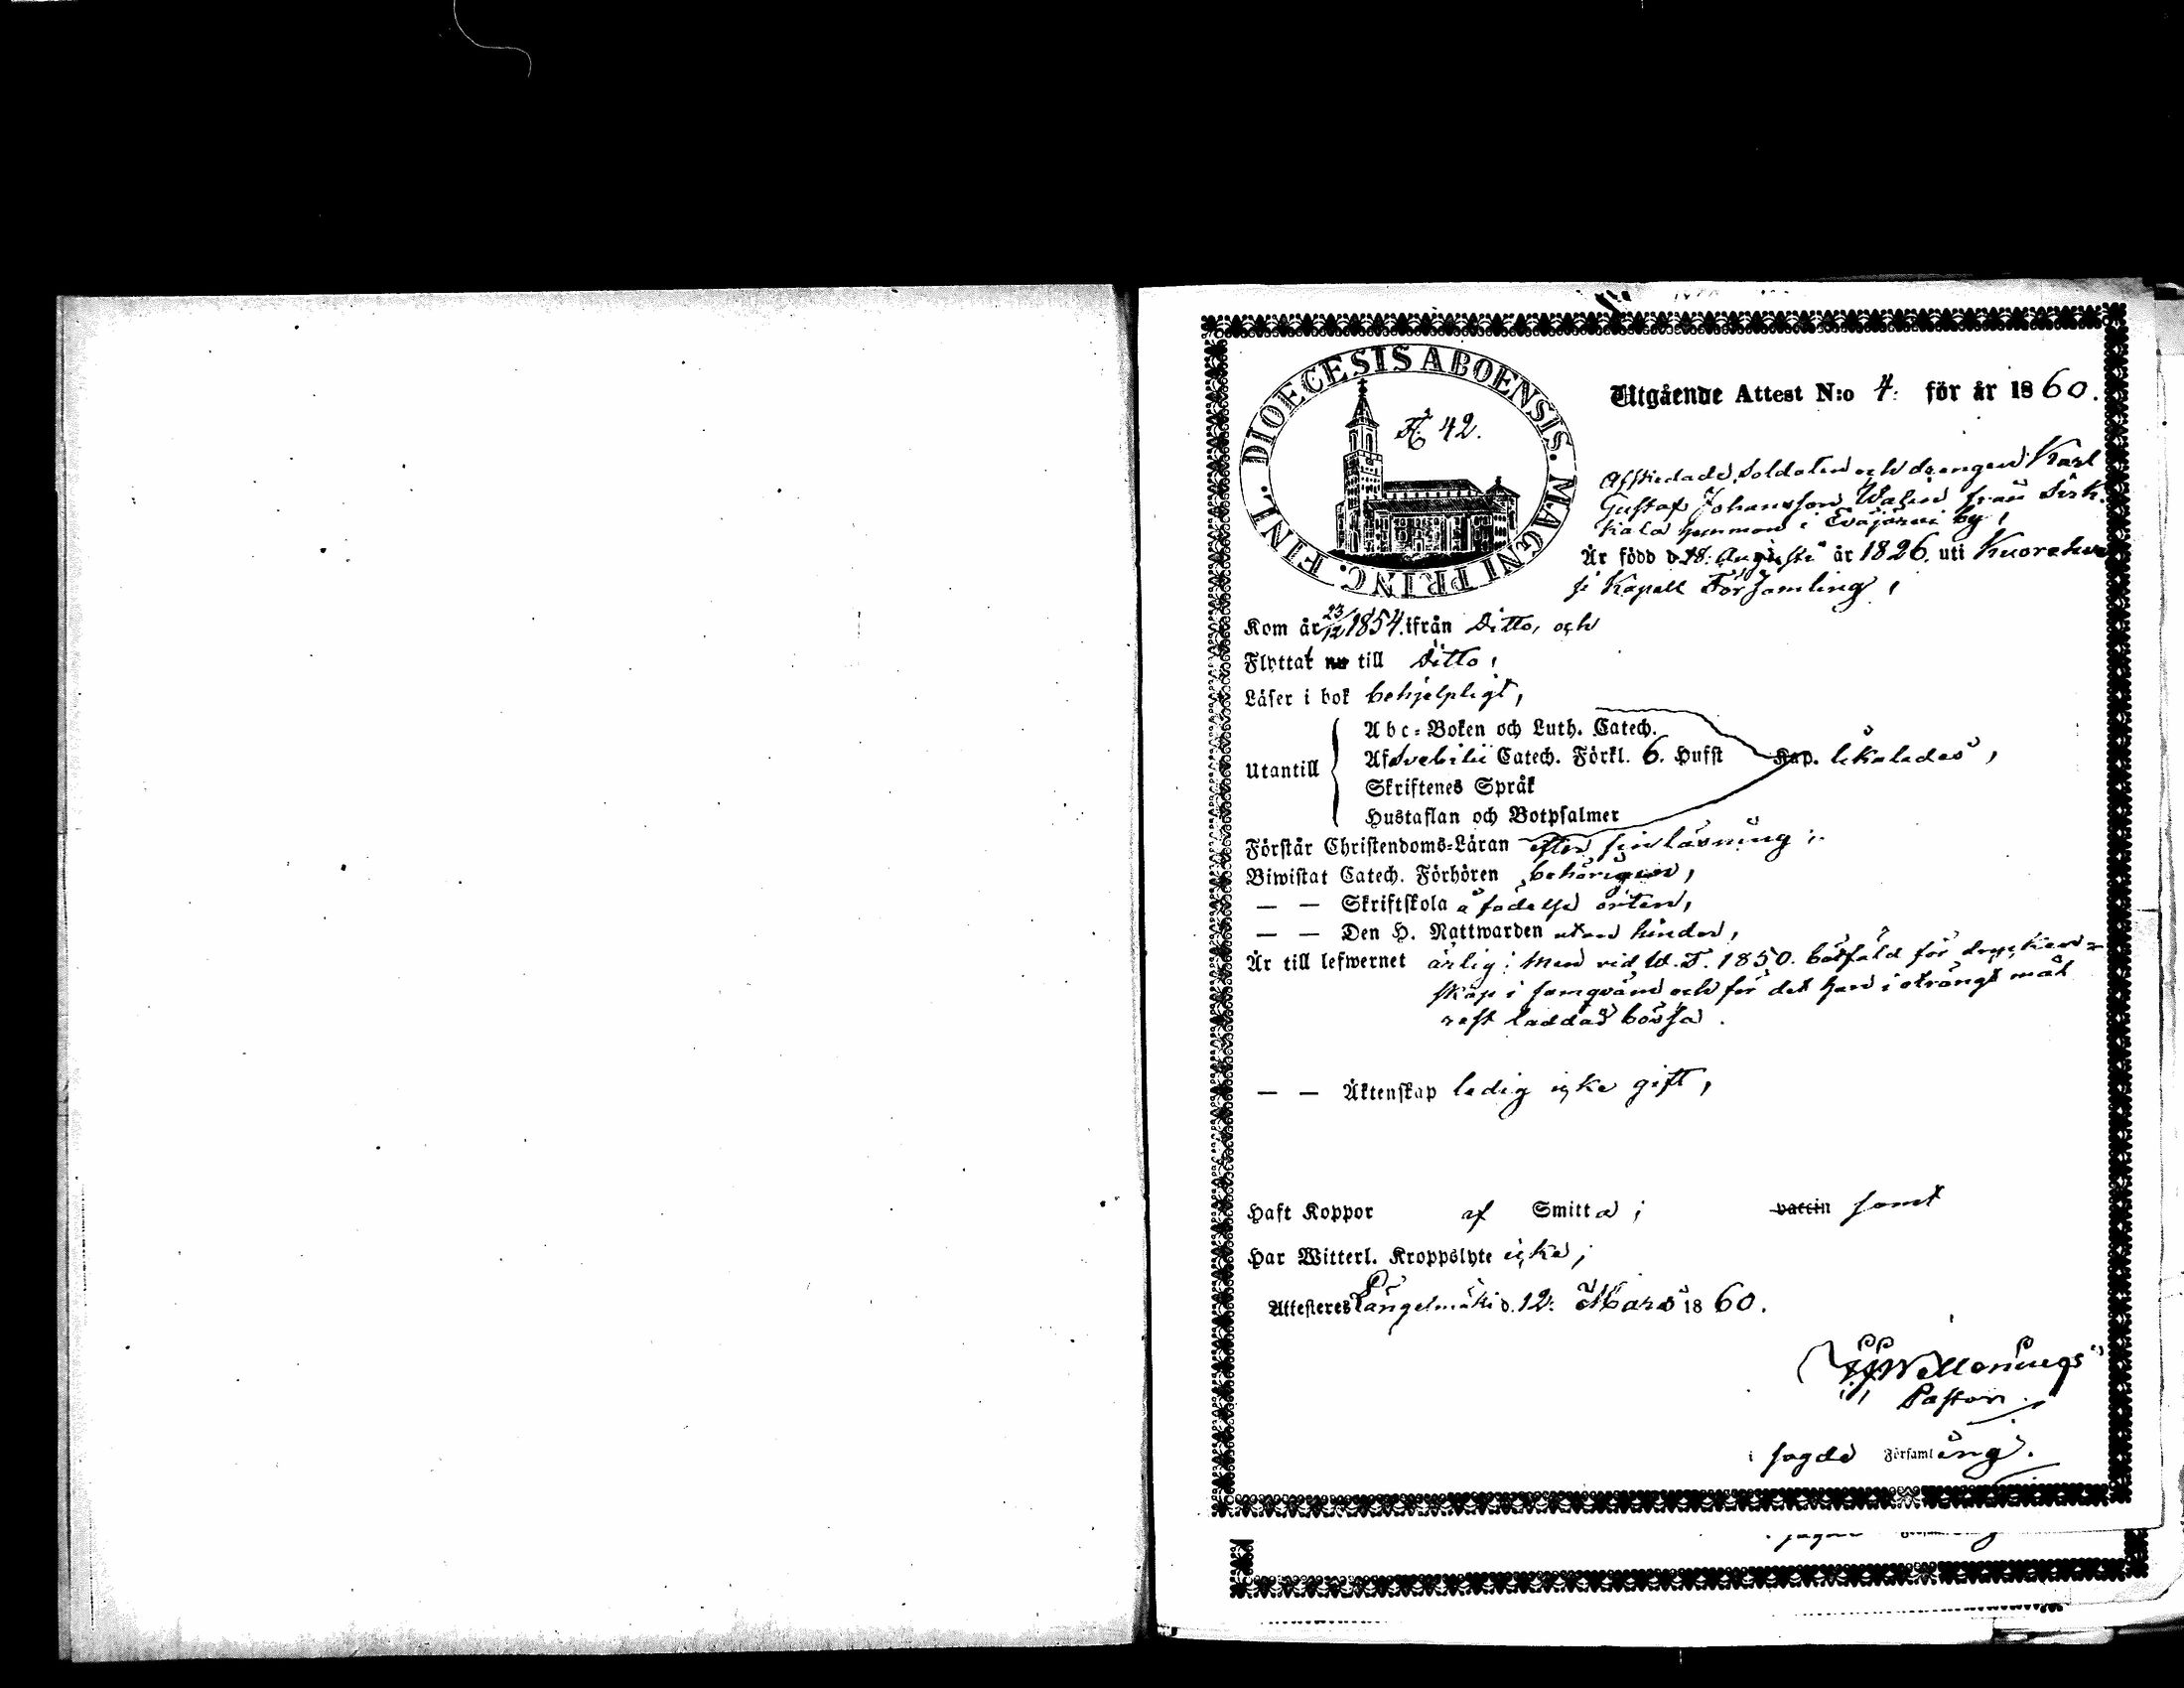 DIOECESIS ABOENSIS. MAGNI PRINC. FINL.
42.
Utgående Attest N:o 4. för år 1860.
Afskedade Soldaten och drengen Karl
Gustaf Johansson Walin från Sirk-
kala hemman i Eväjärvi by,
Är född d. 28. Augusti år 1826. uti Kuoreve-
si Kapell Församling,
Kom år 23/12 1854. ifrån Ditto, och
Flyttat nu till Ditto,
Läser i bok behjelpligt,
Utantill
Abc-Boken och Luth. Catech.
Af Svebilii Catech. Förkl. 6. Hufst Kap. likaledes,
Skriftenes Språk
Hustaflan och Botpsalmer
Förstår Christendoms-Läran efter sin läsning;
Biwistat Catech. Förhören behörigen,
— — Skriftskola å födelse orten,
— — Den H. Nattwarden utan hinder,
Är till lefwernet ärlig; men vid W. T. 1850. botfäld för drycken-
skap i samqväm och för det han i otrångt mål
rest laddad bössa.
— — Äktenskap ledig icke gift,
Haft Koppor af Smitta; vaccin samt
Har Witterl. Kroppslyte icke;
Attesteras Längelmäki d. 12. Mars 1860.
Pastor.
i sagde Församling.